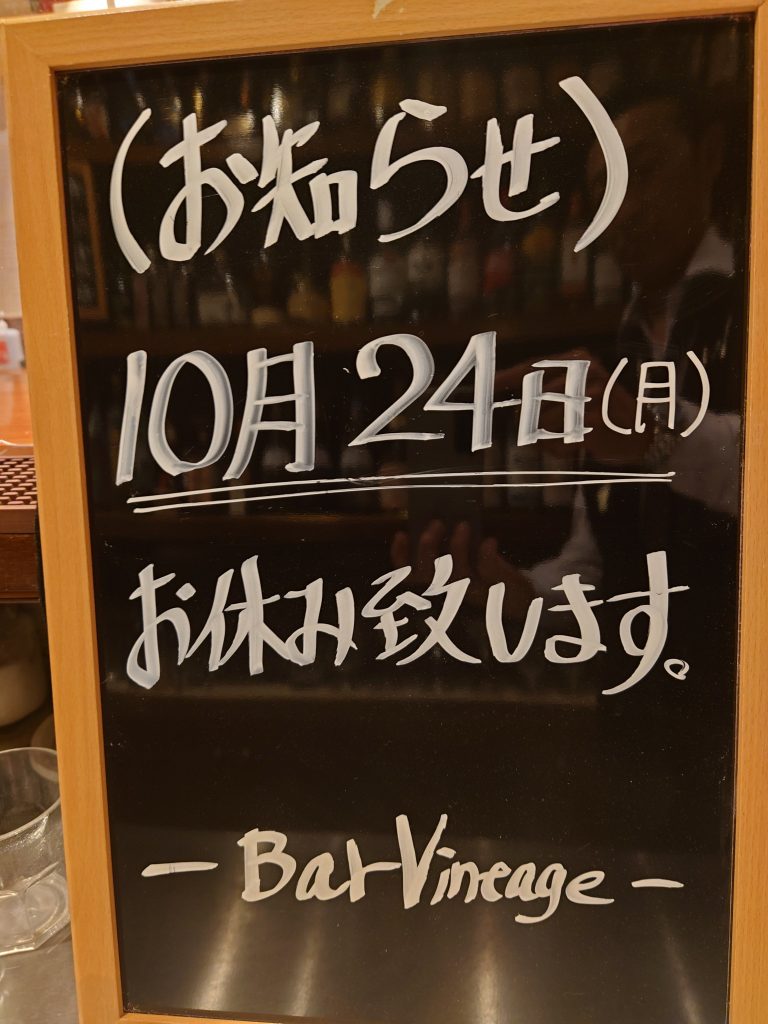 (お知らせ)
10月24日(月)
お休み致します。
- Bar Vineage -